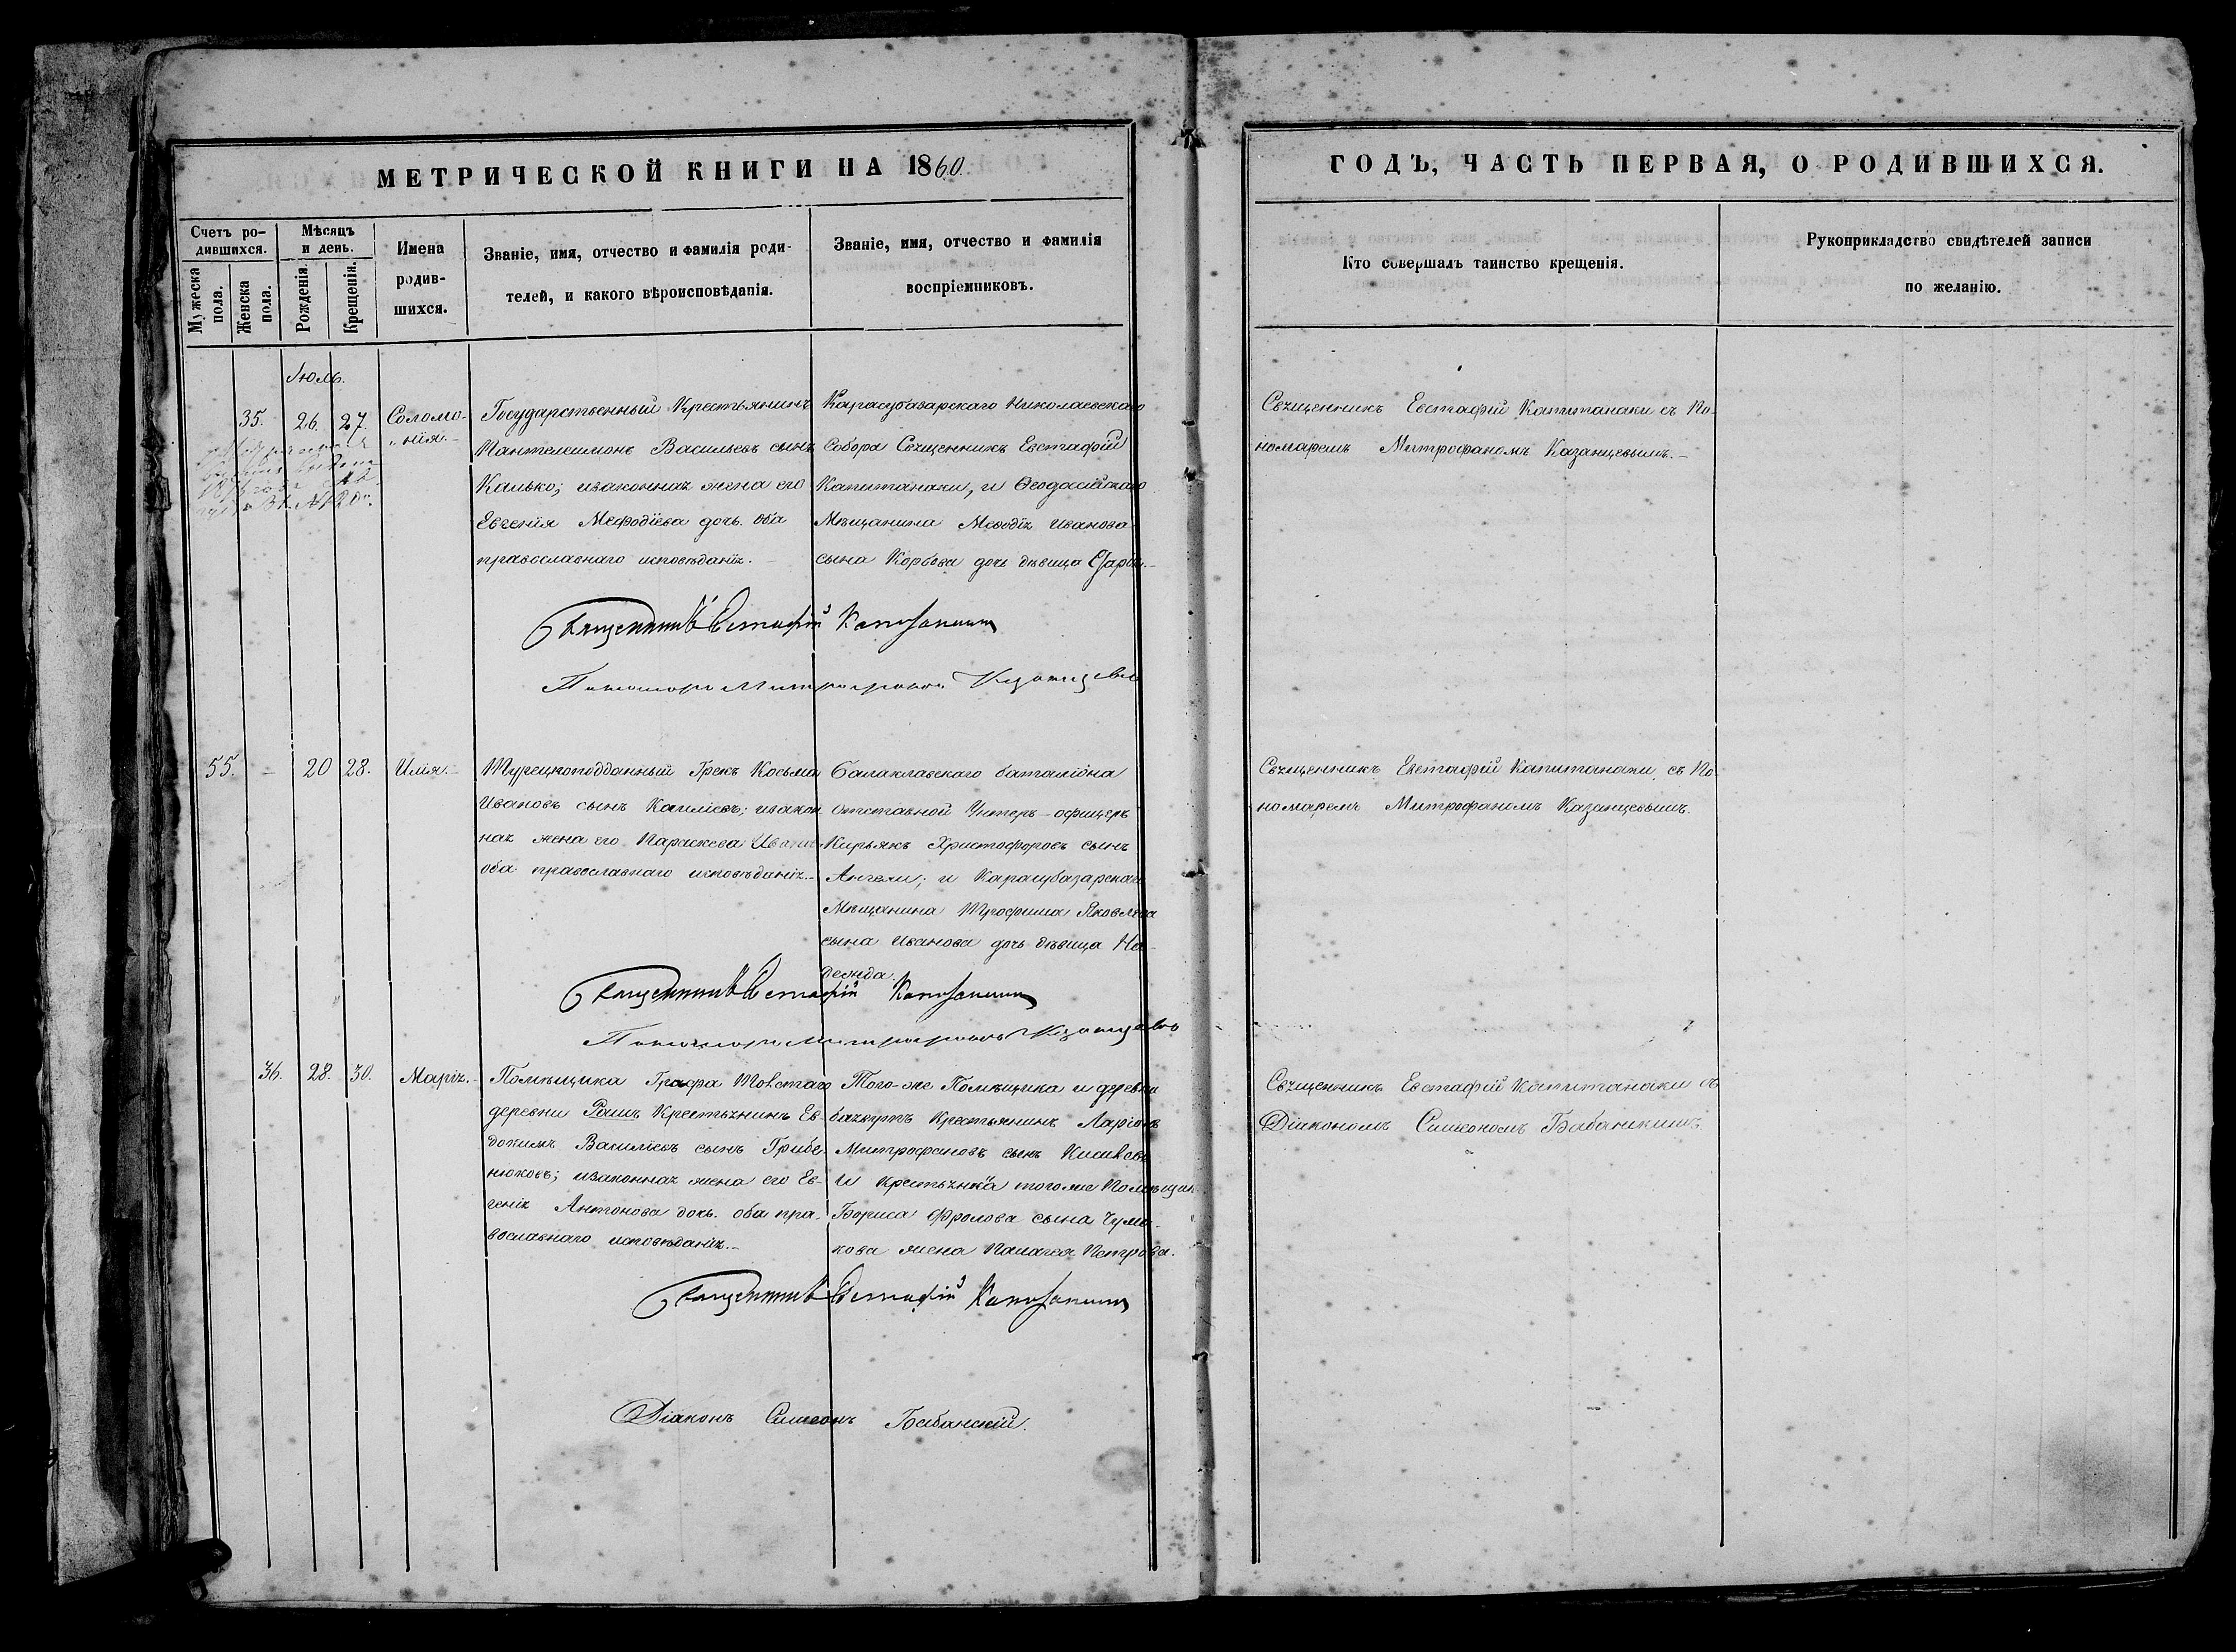 МЕТРИЧЕСКОЙ КНИГИ НА 1860.
Счетъ ро-
дившихся.
Мужеска
пола.
Женска
пола.
Мѣсяцъ
и день.
Рожденія.
Крещенія.
Имена
родив-
шихся.
Званіе, имя, отчество и фамилія роди-
телей, и какого вѣроисповѣданія.
Званіе, имя, отчество и фамилія
воспріемниковъ.
Іюль.
35. 26. 27.
Соломо-
нія.
Государственный Крестьянинъ
Пантелеимонъ Васильевъ сынъ
Калько; изаконная жена его
Евгенія Мефодіева дочь. оба
православнаго исповѣданія.
Карасубазарскаго Николаевскаго
Собора Священникъ Евстафій
Капитанаки, и Ѳеодосійскаго
Мѣщанина Меѳодія Иванова
сына Корбова дочь дѣвица
Священникъ Евстафій Капитанаки
Пономарь Митрофанъ Казанцевъ
55. - 20 28. Илія.
Турецкоподданный Грекъ Косьма
Ивановъ сынъ Каиліевъ; изакон
ная жена его Параскева Иванова
оба православнаго исповѣданія.
Балаклавскаго баталіона
Отставной Унтеръ-офицеръ
Кирьякъ Христофоровъ сынъ
Ангели; и Карасубазарскаго
Мѣщанина Трофима Яковлева
сына Иванова дочь дѣвица На-
дежда.
Священникъ Евстафій Капитанаки
Пономарь Митрофанъ Казанцевъ
36. 28. 30. Марія.
Помѣщика Графа Товстаго
деревни Рашъ Крестьянинъ Ев-
докимъ Василіевъ сынъ Грибе-
нюковъ; изаконная жена его Ев-
генія Антонова дочь. оба пра-
вославнаго исповѣданія.
Того-же Помѣщика и деревни
Крестьянинъ Ларіонъ
Митрофановъ сынъ
и Крестьянка тогоже Помѣщика
Бориса Фролова сына Чума-
кова жена Палагея Петрова.
Священникъ Евстафій Капитанаки
Діаконъ Симеонъ Бабанскій.
ГОДЪ, ЧАСТЬ ПЕРВАЯ, О РОДИВШИХСЯ.
Кто совершалъ таинство крещенія.
Рукоприкладство свидѣтелей записи
по желанію.
Священникъ Евстафій Капитанаки съ По-
номаремъ Митрофаномъ Казанцевымъ.
Священникъ Евстафій Капитанаки съ По-
номаремъ Митрофаномъ Казанцевымъ.
Священникъ Евстафій Капитанаки съ
Діакономъ Симеономъ Бабанскимъ